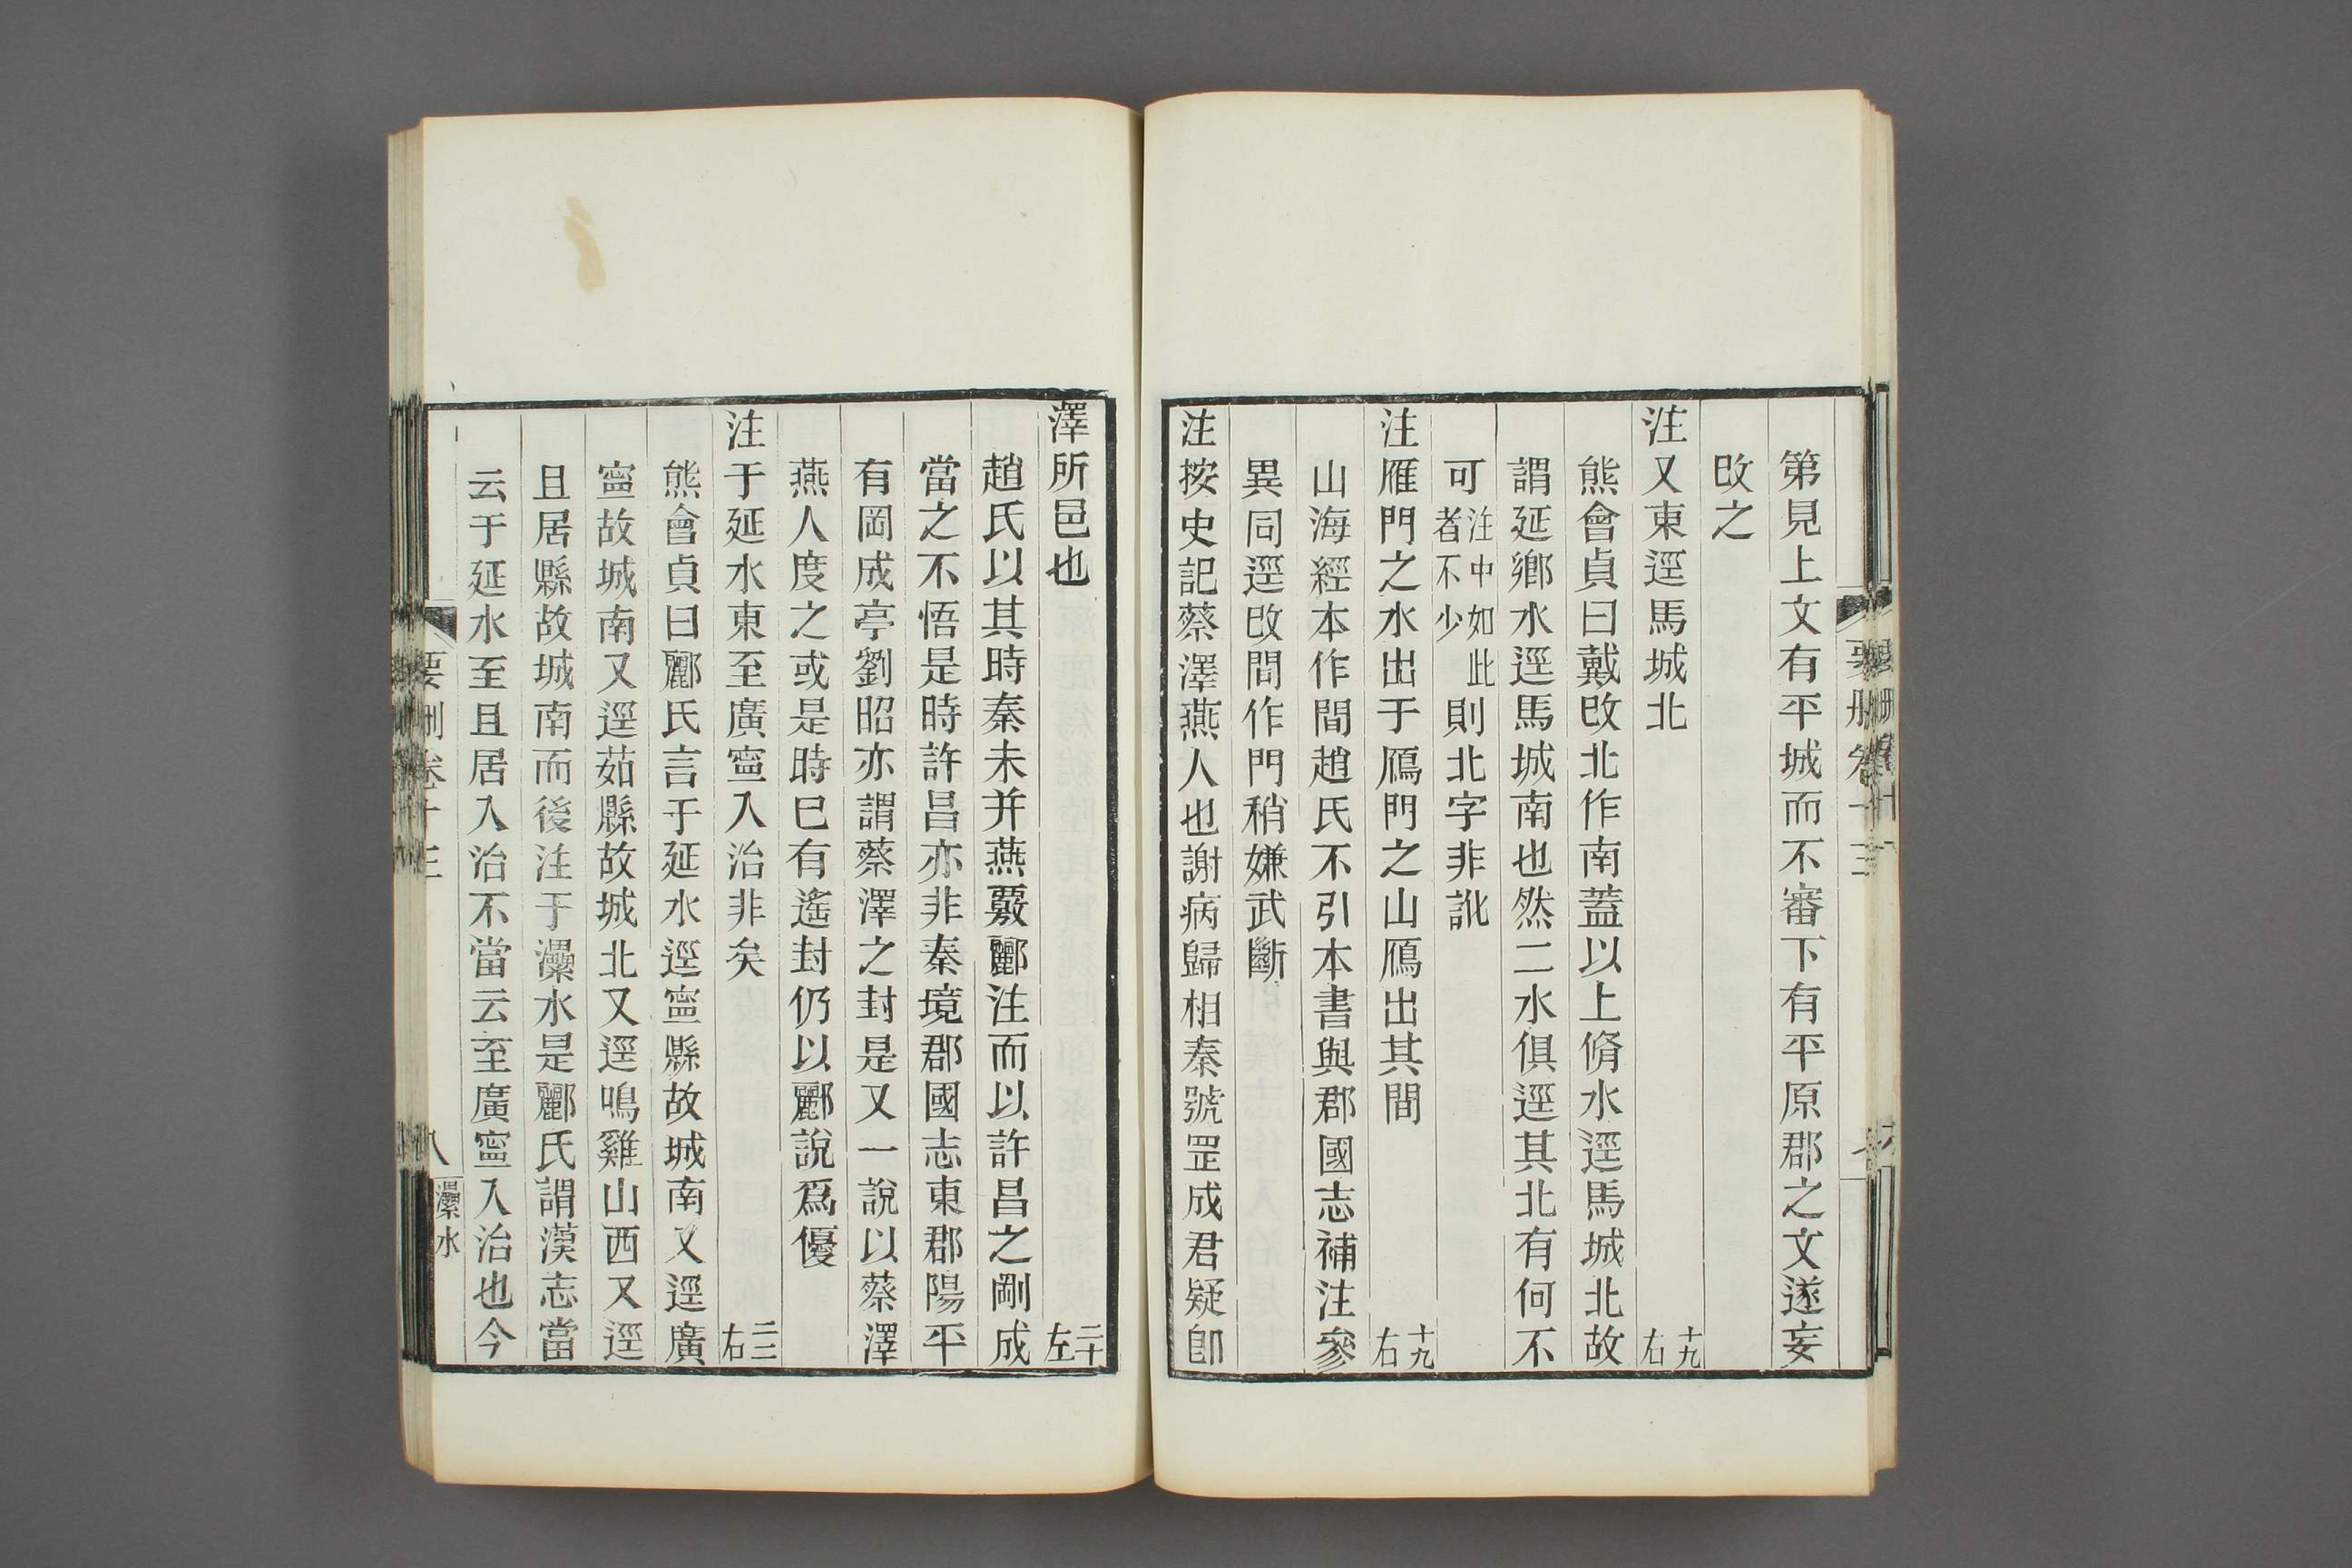 第見上文有平城而不審下有平原郡之文遂妄
改之
注又東逕馬城北 十九右
熊會貞曰戴改北作南蓋以上脩水逕馬城北故
謂延鄉水逕馬城南也然二水俱逕其北有何不
可注中如此者不少則北字非訛
注雁門之水出于鴈門之山鴈出其間 十九右
山海經本作間趙氏不引本書與郡國志補注參
異同逕改間作門稍嫌武斷
注按史記蔡澤燕人也謝病歸相秦號罡成君疑卽
澤所邑也 二十左
趙氏以其時秦未并燕覈酈注而以許昌之剛成
當之不悟是時許昌亦非秦境郡國志東郡陽平
有岡成亭劉昭亦謂蔡澤之封是又一說以蔡澤
燕人度之或是時已有遙封仍以酈說爲優
注于延水東至廣甯入治非矣 二二右
熊會貞曰酈氏言于延水逕甯縣故城南又逕廣
甯故城南又逕茹縣故城北又逕鳴雞山西又逕
且居縣故城南而後注于灅水是酈氏謂漢志當
云于延水至且居入治不當云至廣甯入治也今
要刪卷十三
八
灅水